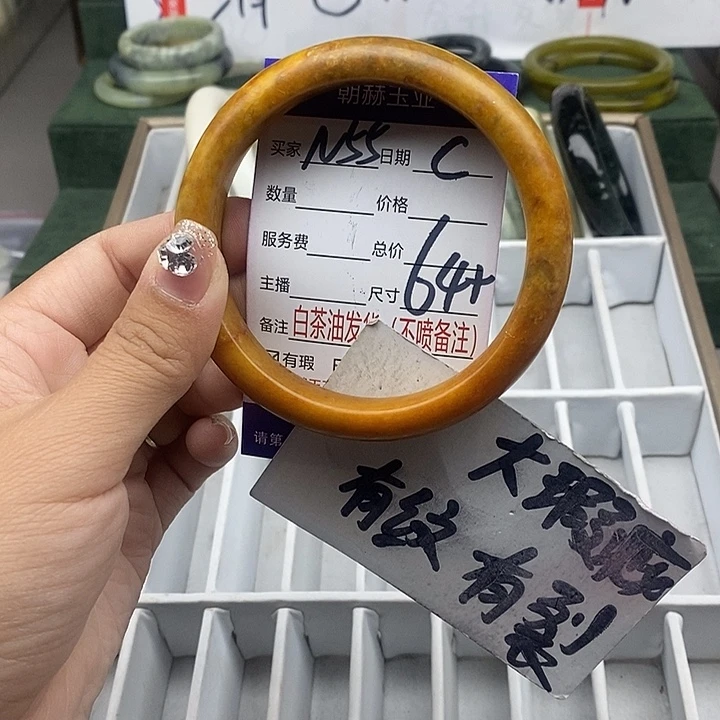 朝赫玉业
买家 N55 日期 C
数量 价格
服务费 总价
主播 尺寸 64+
备注 白茶油发货（不喷备注）
有瑕
请第
大瑕疵
有纹 有裂